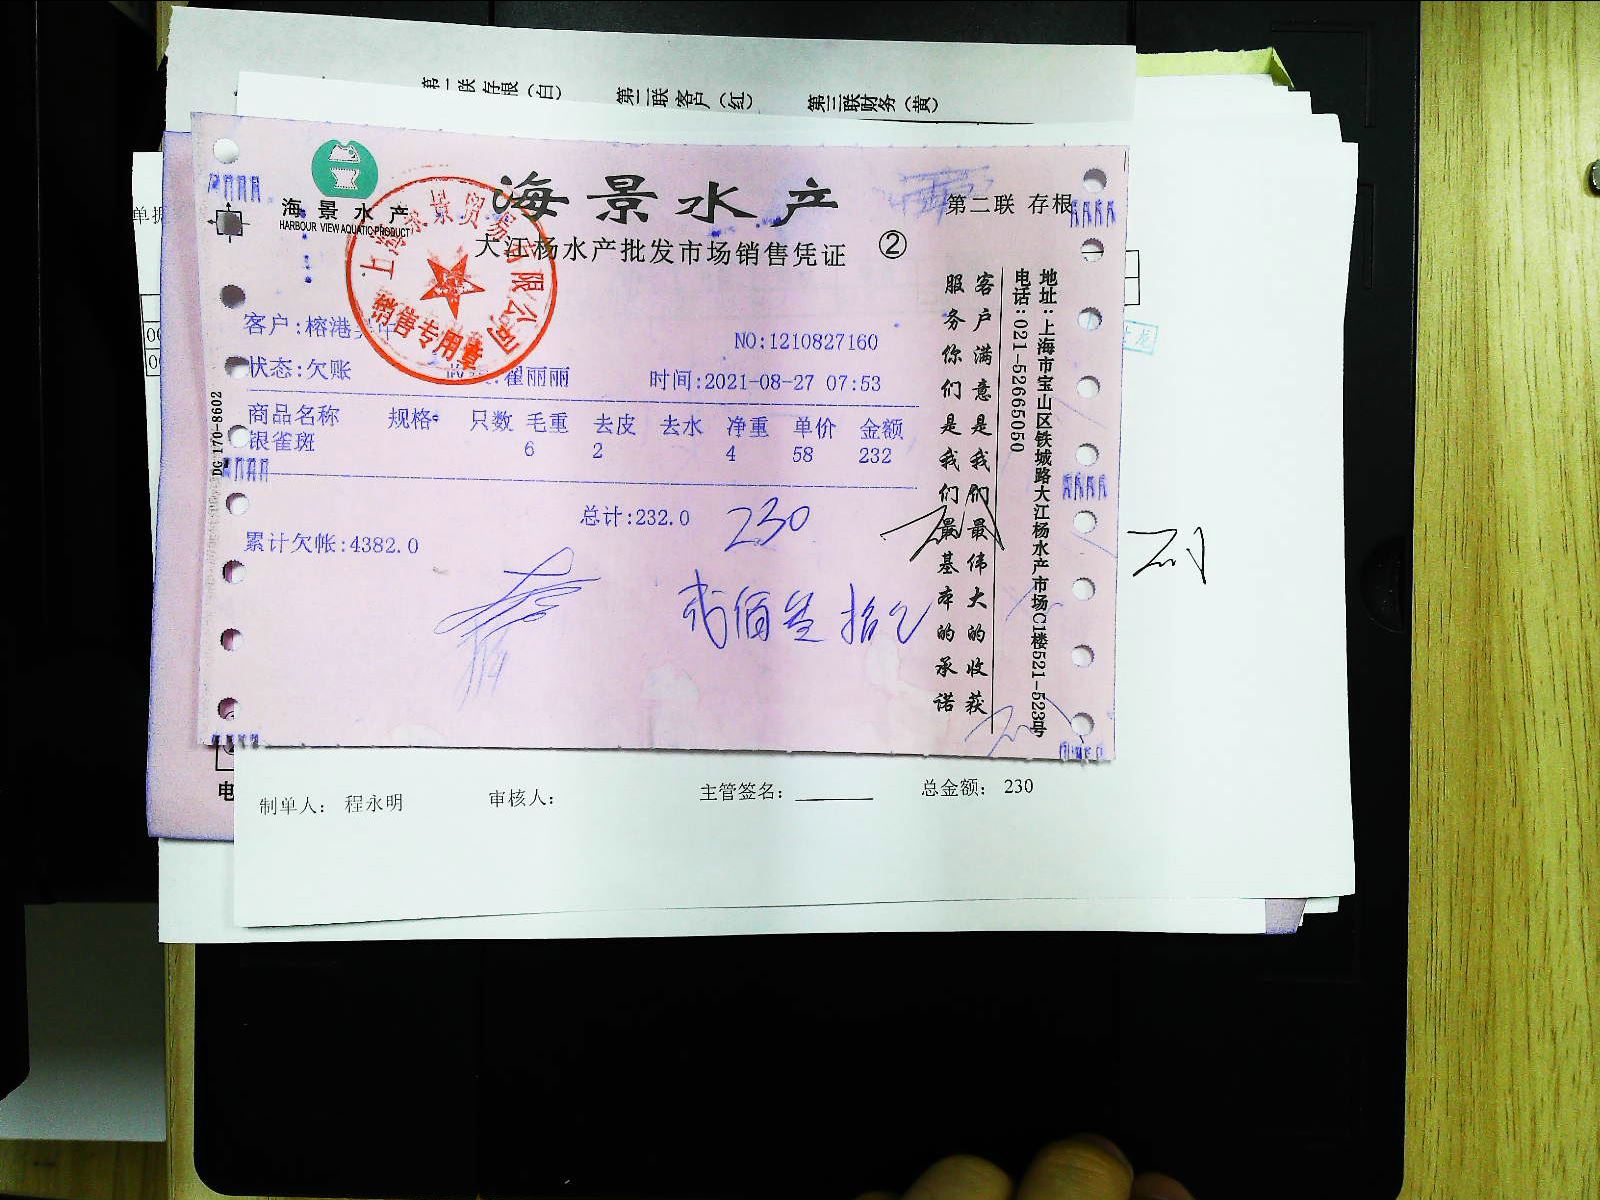 第一联 存根（白） 第二联 客户（红） 第三联财务（黄）
单据
海景水产
HARBOUR VIEW AQUATIC PRODUCT
海景水产
大江杨水产批发市场销售凭证 ②
第二联 存根
贸易有限公司
销售专用章
客户:榕港
NO:1210827160
状态:欠账 翟丽丽 时间:2021-08-27 07:53
商品名称 规格 只数 毛重 去皮 去水 净重 单价 金额
银雀斑 6 2 4 58 232
总计:232.0 230
累计欠帐:4382.0
贰佰叁拾
客户满意是我们最伟大的收获
服务你们是我们最基本的承诺
地址:上海市宝山区铁城路大江杨水产市场C1楼521-523号
电话:021-52665050
DG 170-8602
制单人: 程永明 审核人: 主管签名: 总金额: 230